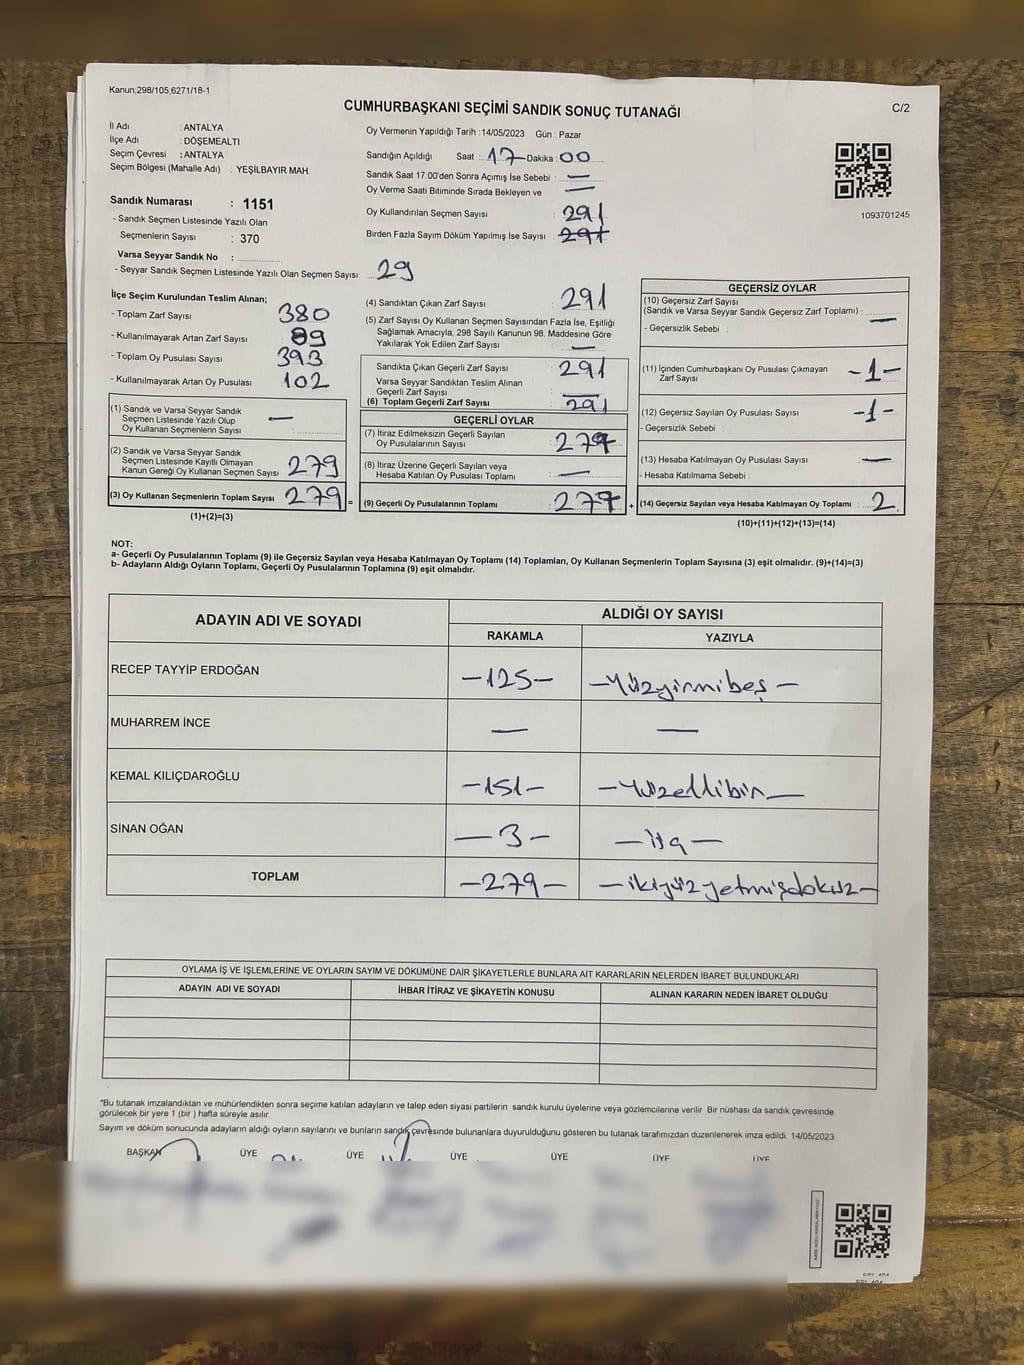 Kanun;298/105,6271/18-1
CUMHURBAŞKANI SEÇİMİ SANDIK SONUÇ TUTANAĞI
C/2
İl Adı : ANTALYA
İlçe Adı : DÖŞEMEALTI
Seçim Çevresi : ANTALYA
Seçim Bölgesi (Mahalle Adı) : YEŞİLBAYIR MAH.
Oy Vermenin Yapıldığı Tarih : 14/05/2023 Gün : Pazar
Sandığın Açıldığı Saat : 17 Dakika : 00
Sandık Saat 17:00'den Sonra Açımış İse Sebebi : —
Oy Verme Saati Bitiminde Sırada Bekleyen ve —
Oy Kullandırılan Seçmen Sayısı : 291
Birden Fazla Sayım Döküm Yapılmış İse Sayısı : 291
1093701245
Sandık Numarası : 1151
- Sandık Seçmen Listesinde Yazılı Olan
Seçmenlerin Sayısı : 370
Varsa Seyyar Sandık No :
- Seyyar Sandık Seçmen Listesinde Yazılı Olan Seçmen Sayısı: 29
İlçe Seçim Kurulundan Teslim Alınan;
- Toplam Zarf Sayısı : 380
- Kullanılmayarak Artan Zarf Sayısı : 89
- Toplam Oy Pusulası Sayısı : 393
- Kullanılmayarak Artan Oy Pusulası : 102
(1) Sandık ve Varsa Seyyar Sandık
Seçmen Listesinde Yazılı Olup —
Oy Kullanan Seçmenlerin Sayısı :
(2) Sandık ve Varsa Seyyar Sandık
Seçmen Listesinde Kayıtlı Olmayan
Kanun Gereği Oy Kullanan Seçmen Sayısı : 279
(3) Oy Kullanan Seçmenlerin Toplam Sayısı : 279 =
(1)+(2)=(3)
(4) Sandıktan Çıkan Zarf Sayısı : 291
(5) Zarf Sayısı Oy Kullanan Seçmen Sayısından Fazla İse, Eşitliği
Sağlamak Amacıyla, 298 Sayılı Kanunun 98. Maddesine Göre
Yakılarak Yok Edilen Zarf Sayısı : —
Sandıkta Çıkan Geçerli Zarf Sayısı : 291
Varsa Seyyar Sandıktan Teslim Alınan
Geçerli Zarf Sayısı : —
(6) Toplam Geçerli Zarf Sayısı : 291
GEÇERLİ OYLAR
(7) İtiraz Edilmeksizin Geçerli Sayılan
Oy Pusulalarının Sayısı : 277
(8) İtiraz Üzerine Geçerli Sayılan veya
Hesaba Katılan Oy Pusulası Toplamı : —
(9) Geçerli Oy Pusulalarının Toplamı : 277 +
GEÇERSİZ OYLAR
(10) Geçersiz Zarf Sayısı
(Sandık ve Varsa Seyyar Sandık Geçersiz Zarf Toplamı) : —
- Geçersizlik Sebebi :
(11) İçinden Cumhurbaşkanı Oy Pusulası Çıkmayan
Zarf Sayısı : -1-
(12) Geçersiz Sayılan Oy Pusulası Sayısı : -1-
- Geçersizlik Sebebi :
(13) Hesaba Katılmayan Oy Pusulası Sayısı : —
- Hesaba Katılmama Sebebi :
(14) Geçersiz Sayılan veya Hesaba Katılmayan Oy Toplamı : 2
(10)+(11)+(12)+(13)=(14)
NOT:
a- Geçerli Oy Pusulalarının Toplamı (9) ile Geçersiz Sayılan veya Hesaba Katılmayan Oy Toplamı (14) Toplamları, Oy Kullanan Seçmenlerin Toplam Sayısına (3) eşit olmalıdır. (9)+(14)=(3)
b- Adayların Aldığı Oyların Toplamı, Geçerli Oy Pusulalarının Toplamına (9) eşit olmalıdır.
ADAYIN ADI VE SOYADI
ALDIĞI OY SAYISI
RAKAMLA YAZIYLA
RECEP TAYYİP ERDOĞAN -125- -Yüzyirmibeş-
MUHARREM İNCE — —
KEMAL KILIÇDAROĞLU -151- -Yüzellibir-
SİNAN OĞAN -3-
TOPLAM -279- -ikiyüzyetmişdokuz-
OYLAMA İŞ VE İŞLEMLERİNE VE OYLARIN SAYIM VE DÖKÜMÜNE DAİR ŞİKAYETLERLE BUNLARA AİT KARARLARIN NELERDEN İBARET BULUNDUKLARI
ADAYIN ADI VE SOYADI İHBAR İTİRAZ VE ŞİKAYETİN KONUSU ALINAN KARARIN NEDEN İBARET OLDUĞU
"Bu tutanak imzalandıktan ve mühürlendikten sonra seçime katılan adayların ve talep eden siyasi partilerin sandık kurulu üyelerine veya gözlemcilerine verilir Bir nüshası da sandık çevresinde
görülecek bir yere 1 (bir) hafta süreyle asılır.
Sayım ve döküm sonucunda adayların aldığı oyların sayılarını ve bunların sandık çevresinde bulunanlara duyurulduğunu gösteren bu tutanak tarafımızdan düzenlenerek imza edildi. 14/05/2023
BAŞKAN ÜYE ÜYE ÜYE ÜYE ÜYE ÜYE